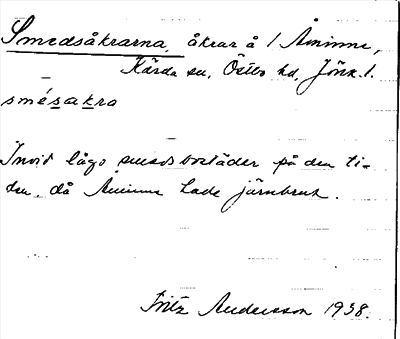 Smedsåkrarna, åkrar å 1 Åminne,
Kärda sn, Östbo hd, Jönk. l.
smésakra
Invid lågo smeds bostäder på den ti-
den, då Åminne hade järnbruk.
Fritz Andersson 1938.